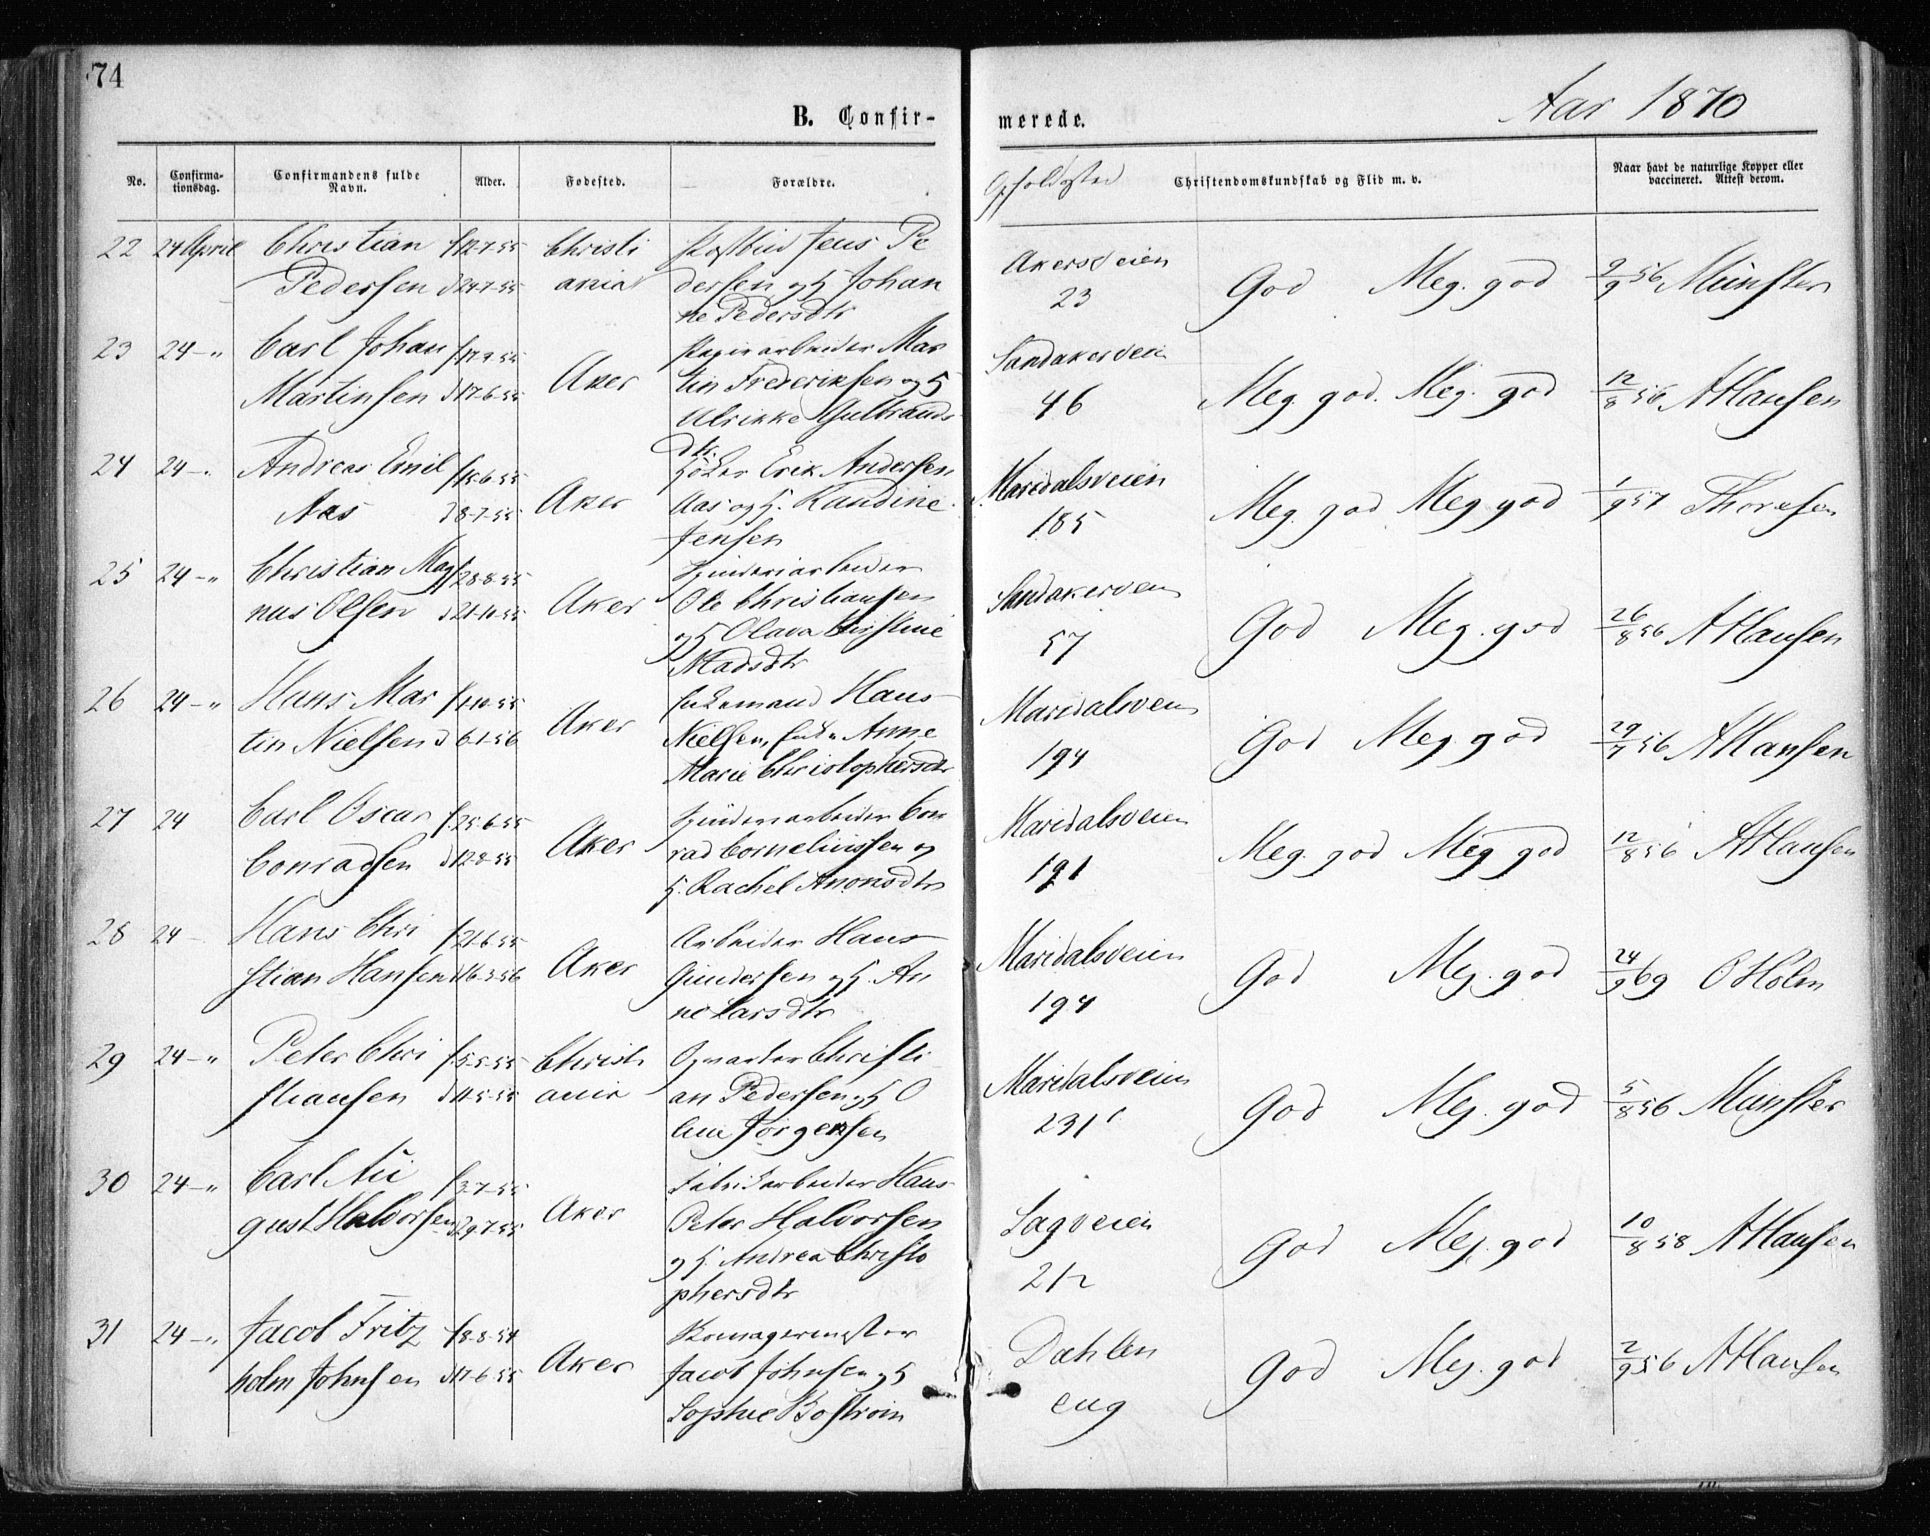 74
B. Confir-
merede.
Aar 1870
No.
Confirma-
tionsdag.
Confirmandens fulde
Navn.
Alder.
Fødested.
Forældre.
Opholdssted
Christendomskundskab og Flid m. v.
Naar havt de naturlige Kopper eller
vaccineret. Attest derom.
22 24 April Christian f 12-7-55 Christi Postbud Jens Pe
Pedersen d 24-7-55 ania dersen og H Johan
ne Pedersdtr
Akersveien
23 God Meg. god 9/9 56 Münster
23 24 -„ Carl Johan Papirarbeider Mar
Martinsen d 17-6-55 Aker tin Frederiksen og H
Ulrikke Gulbrands
dtr.
Sandakerveien
46 Meg. god. Meg. god 12/8 56 AHansen
24 24 -. Andreas Emil f 15-6-55 Høker Erik Andersen
Aas d 8-7-55 Aker Aas og H. Randine
Jensen
Maridalsveien
185 Meg. god Meg. god 1/9 57 Thoresen
25 24 -„ Christian Mag f 28-8-55 Spinderiarbeider
nus Olsen d 21-10-55 Aker Ole Christiansen
og H Olava Kirstine
Madsdtr
Sandakerveien
57 God Meg. god 26/8 56 AHansen
26 24 -„ Hans Mar f 1-10-55 Enkemand Hans
tin Nielsen d 6-1-56 Aker Nielsen, Anne
Marie Christophersdtr
Maridalsveien
194 God Meg god 29/7 56 AHansen
27 24 Carl Oscar f. 25-6-55 Spinderiarbeider Con
Conradsen d 12-8-55 Aker rad Corneliussen og
H. Rachel Anonsdtr
Maridalsveien
191 Meg. god Meg god 12/8 56 AHansen
28 24 - Hans Chri f 21-6-55 Arbeider Hans
stian Hansen d 16-3-56 Aker Gundersen og H. An
ne Larsdtr
Maridalsveien
194 God Meg. god 24/9 69 O Holm
29 24 -„ Peter Chri f. 5-5-55 Christi Opvarter Christi
stiansen d 11-5-55 ania an Pedersen og H O
line Jørgensen
Maridalsveien
231 God Meg. god 5/8 56 Münster
30 24 -„ Carl Au f 3-7-55 Fabrikarbeider Hans
gust Halvorsen d 29-7-55 Aker Peter Halvorsen
og H. Andrea Christo
phersdtr
Sagveien
God Meg. god 10/8 58 AHansen
31 24 -„ Jacob Fritz f 8-8-54
holm Johnsen d 17-6-55 Aker Jacob Johnsen og H
Sophie Bostrøm
Dahlen
eng God Meg. god 2/9 56 AHansen